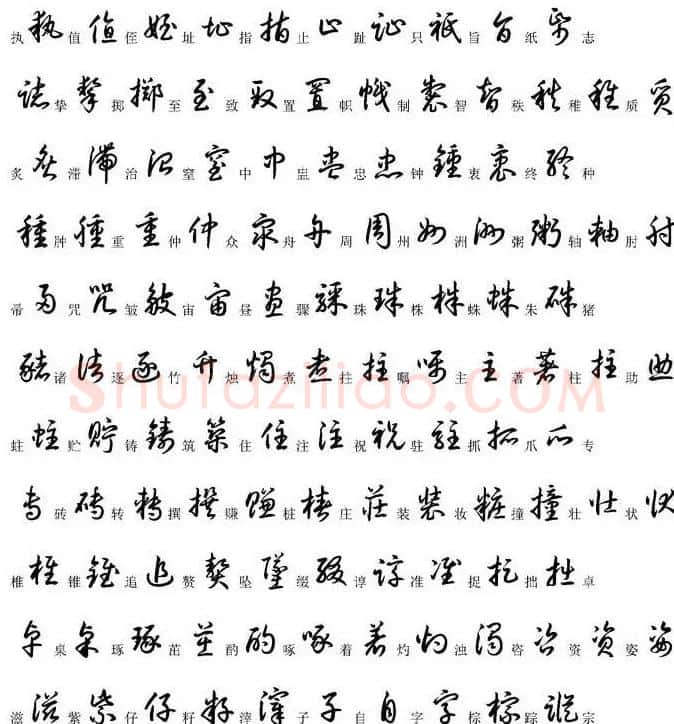 执 值 侄 址 指 止 趾 只 旨 纸 志
挚 掷 至 致 置 帜 制 智 秩 稚 质
炙 滞 治 窒 中 盅 忠 钟 衷 终 种
肿 重 仲 众 舟 周 州 洲 粥 轴 肘
帚 咒 皱 宙 昼 骤 珠 株 蛛 朱 猪
诸 逐 竹 烛 煮 拄 嘱 主 著 柱 助
shufaziliao.COM
蛀 贮 铸 筑 住 注 祝 驻 抓 爪 专
砖 转 撰 赚 桩 庄 装 妆 撞 壮 状
椎 锥 追 赘 坠 缀 谆 准 捉 拙 卓
桌 琢 茁 酌 啄 着 灼 浊 咨 资 姿
滋 紫 仔 籽 滓 子 自 字 棕 踪 宗